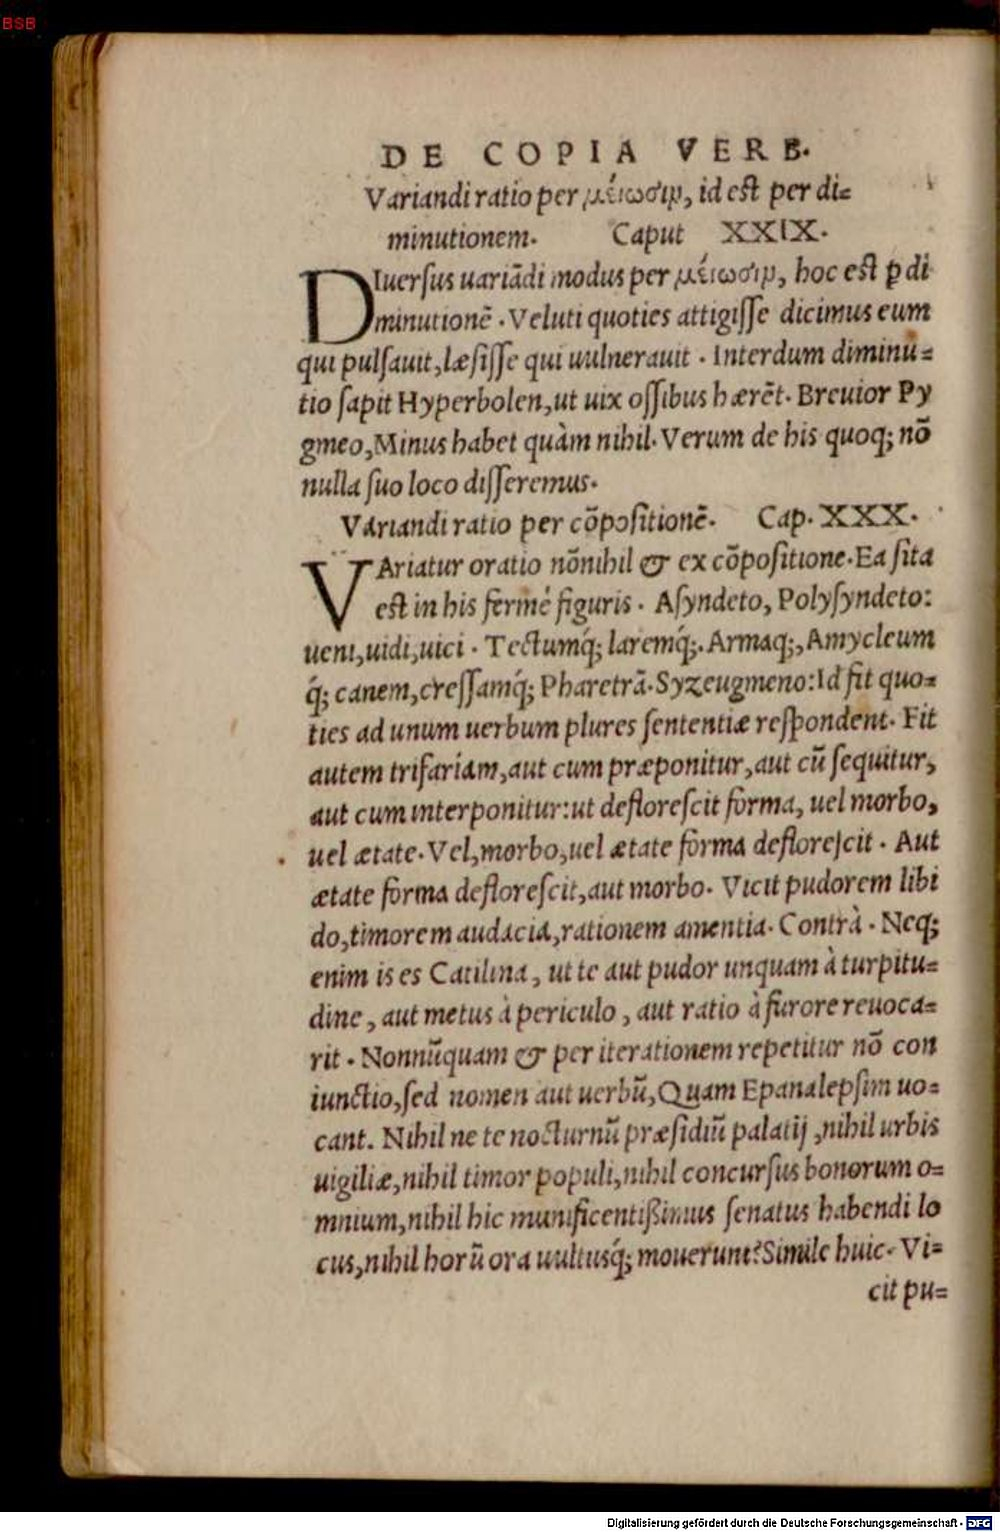 BSB
DE COPIA VERB.
Variandi ratio per μείωσιμ, id est per di=
minutionem. Caput XXIX.
DIuersus uariādi modus per μείωσιμ, hoc est ꝑ di
minutionē . Veluti quoties attigisse dicimus eum
qui pulsauit, læsisse qui uulnerauit . Interdum diminu=
tio sapit Hyperbolen, ut uix ossibus hærēt. Breuior Py
gmeo, Minus habet quàm nihil. Verum de his quoq; nō
nulla suo loco disseremus.
Variandi ratio per cōpositionē. Cap. XXX.
VAriatur oratio nōnihil & ex cōpositione. Ea sita
est in his fermé figuris . Asyndeto, Polysyndeto:
ueni, uidi, uici . Tectumq́; laremq́;. Armaq;, Amycleum
q́; canem, cressamq́; Pharetrā. Syzeugmeno: Id fit quo=
ties ad unum uerbum plures sententiæ respondent. Fit
autem trifariam, aut cum præponitur, aut cū sequitur,
aut cum interponitur: ut deflorescit forma, uel morbo,
uel ætate. Vel, morbo, uel ætate forma deflorescit . Aut
ætate forma deflorescit, aut morbo. Vicit pudorem libi
do, timorem audacia, rationem amentia. Contrà . Neq;
enim is es Catilina, ut te aut pudor unquam à turpitu=
dine, aut metus à periculo, aut ratio à furore reuoca=
rit . Nonnūquam & per iterationem repetitur nō con
iunctio, sed nomen aut uerbū, Quam Epanalepsim uo=
cant. Nihil ne te nocturnū præsidiū palatij, nihil urbis
uigiliæ, nihil timor populi, nihil concursus bonorum o=
mnium, nihil hic munificentißimus senatus habendi lo
cus, nihil horū ora uultusq́; mouerunt? Simile huic. Vi=
cit pu=
Digitalisierung gefördert durch die Deutsche Forschungsgemeinschaft - DFG